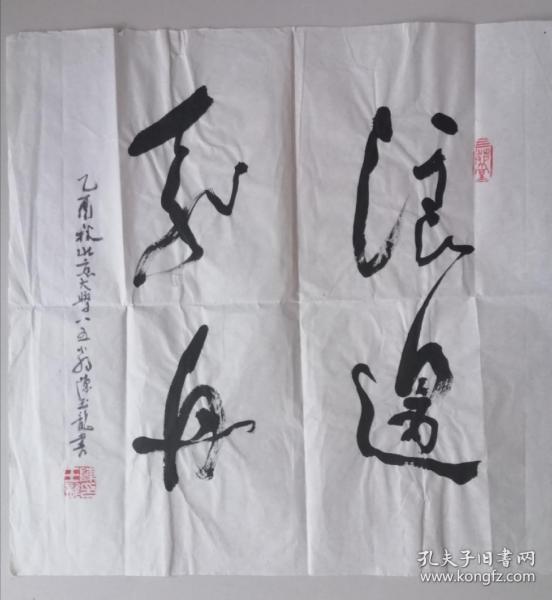 浪遏
飞舟
乙酉秋北京大学八五小翁陈玉龙书
孔夫子旧书网
www.kongfz.com